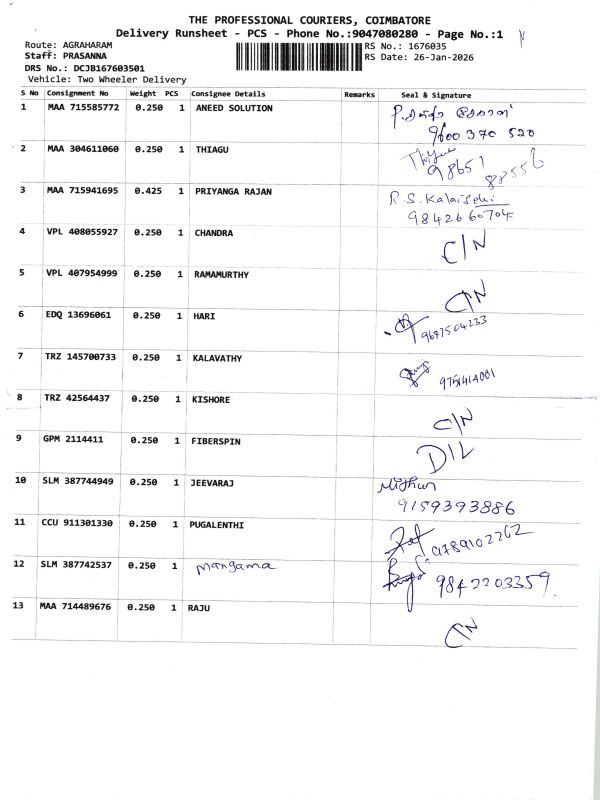 THE PROFESSIONAL COURIERS, COIMBATORE
Delivery Runsheet - PCS - Phone No.:9047080280 - Page No.:1
Route: AGRAHARAM
Staff: PRASANNA
DRS No.: DCJB167603501
Vehicle: Two Wheeler Delivery
RS No.: 1676035
RS Date: 26-Jan-2026
S No Consignment No Weight PCS Consignee Details Remarks Seal & Signature
1 MAA 715585772 0.250 1 ANEED SOLUTION
9600 370 520
2 MAA 304611060 0.250 1 THIAGU
98651 88556
3 MAA 715941695 0.425 1 PRIYANGA RAJAN R.S. Kalaiselvi
9842660704
4 VPL 408055927 0.250 1 CHANDRA C/N
5 VPL 407954999 0.250 1 RAMAMURTHY C/N
6 EDQ 13696061 0.250 1 HARI 9687504233
7 TRZ 145700733 0.250 1 KALAVATHY 9751414001
8 TRZ 42564437 0.250 1 KISHORE C/N
9 GPM 2114411 0.250 1 FIBERSPIN D/L
10 SLM 387744949 0.250 1 JEEVARAJ Mithun
9159393886
11 CCU 911301330 0.250 1 PUGALENTHI 9789102262
12 SLM 387742537 0.250 1 mangama 9842203359
13 MAA 714489676 0.250 1 RAJU C/N